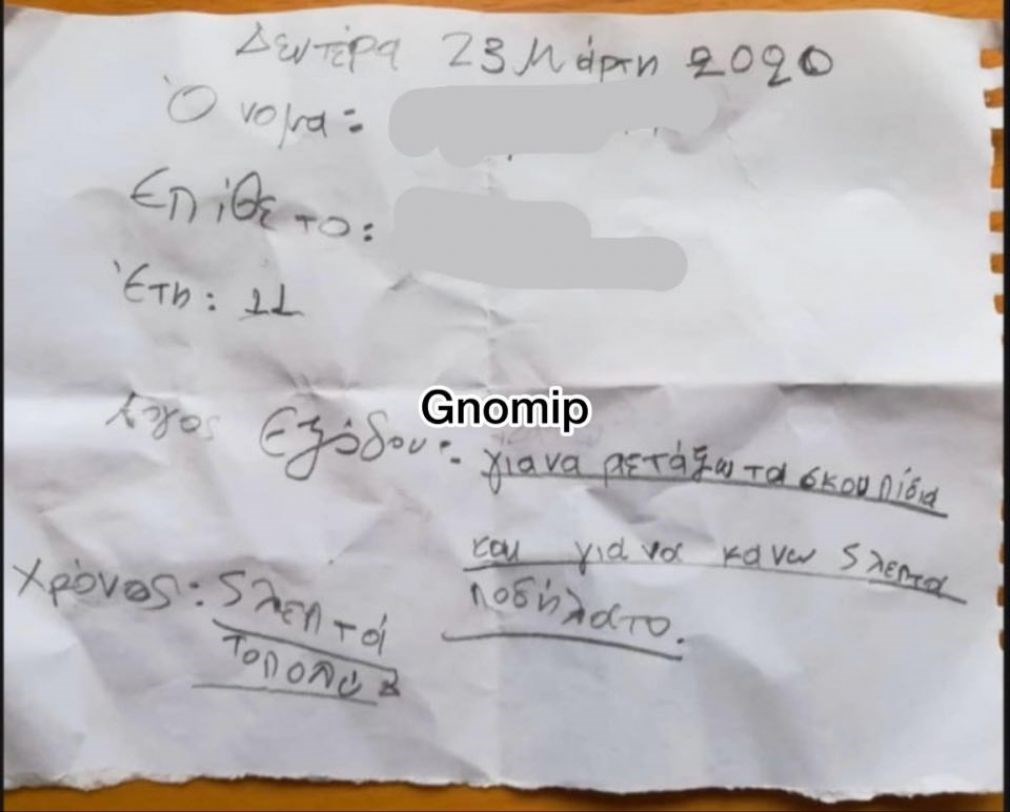 Δευτέρα 23 Μάρτη 2020
Όνομα:
Επίθετο:
Έτη: 11
Gnomip
Λγος Εξόδου: για να πετάξω τα σκουπίδια
και για να κανω 5 λεπτα
ποδήλατο.
Χρόνος: 5 λεπτά
το πολύ